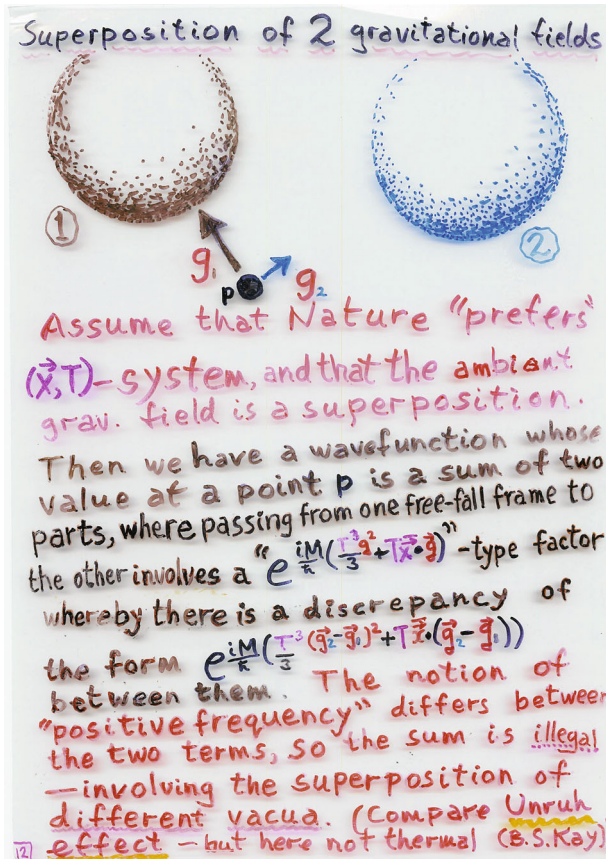 Superposition of 2 gravitational fields
1
2
g₁
p
g₂
Assume that Nature "prefers"
(x⃗,T)-system, and that the ambient
grav. field is a superposition.
Then we have a wavefunction whose
value at a point p is a sum of two
parts, where passing from one free-fall frame to
the other involves a "e^{iM/ħ(T³/3 g⃗²+Tx⃗•g⃗)}"-type factor
whereby there is a discrepancy of
the form e^{iM/ħ(T³/3 (g⃗₂-g⃗₁)²+Tx⃗•(g⃗₂-g⃗₁))}
between them. The notion of
"positive frequency" differs between
the two terms, so the sum is illegal
—involving the superposition of
different vacua. (Compare Unruh
12 effect —but here not thermal (B.S.Kay)